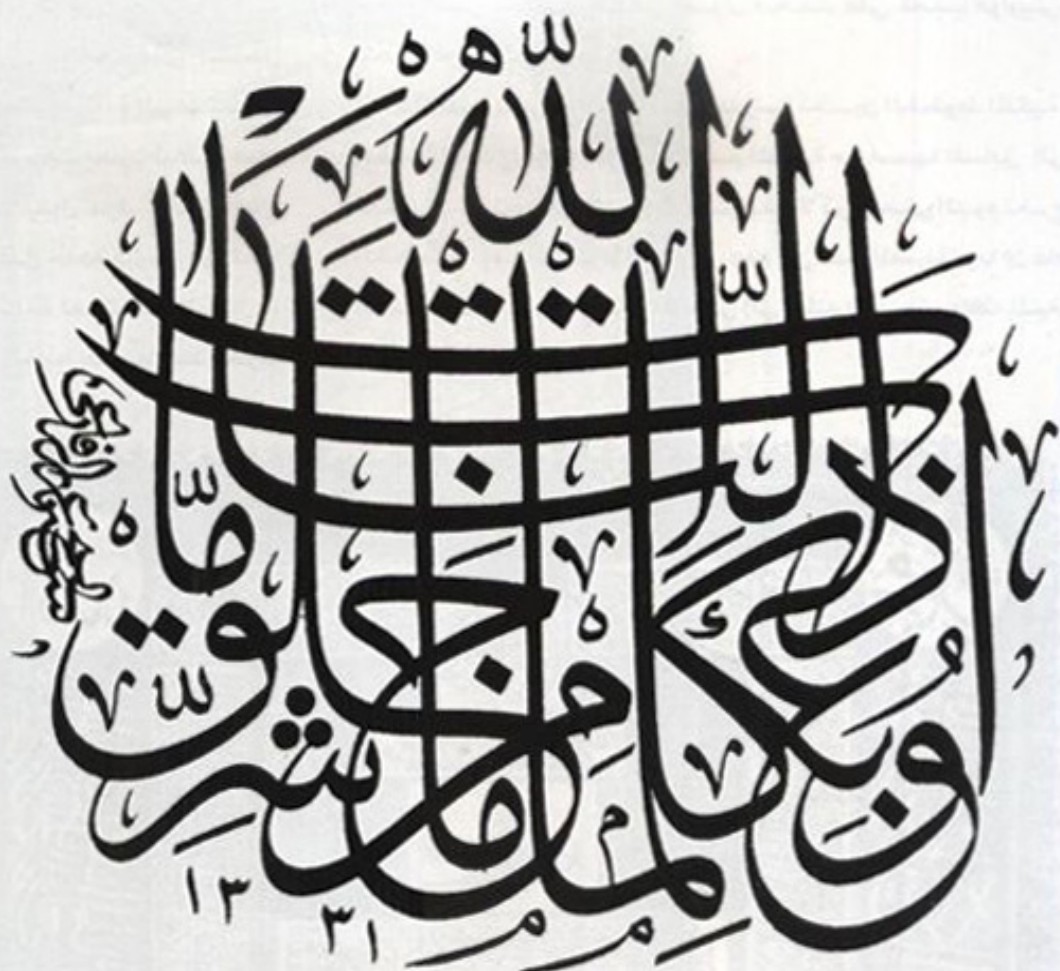 اعوذ بكلمات الله التامات من شر ما خلق
١٣٣١